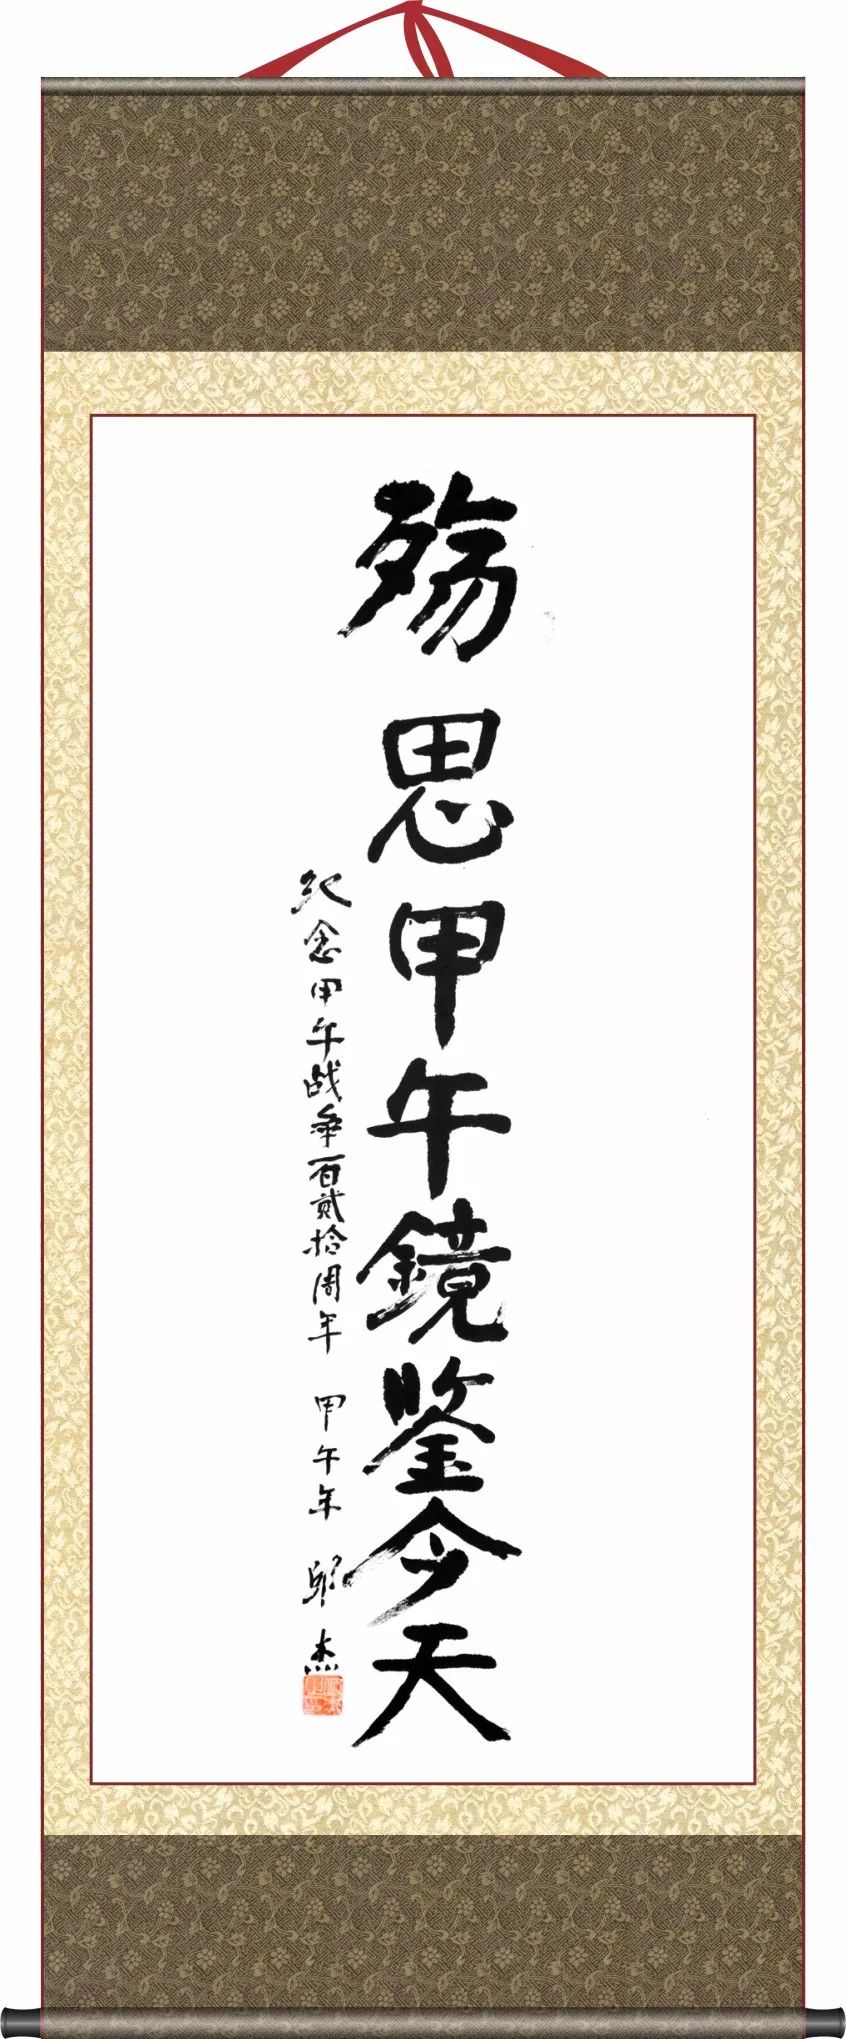 殇思甲午镜鉴今天
纪念甲午战争一百贰拾周年 甲午年 杰